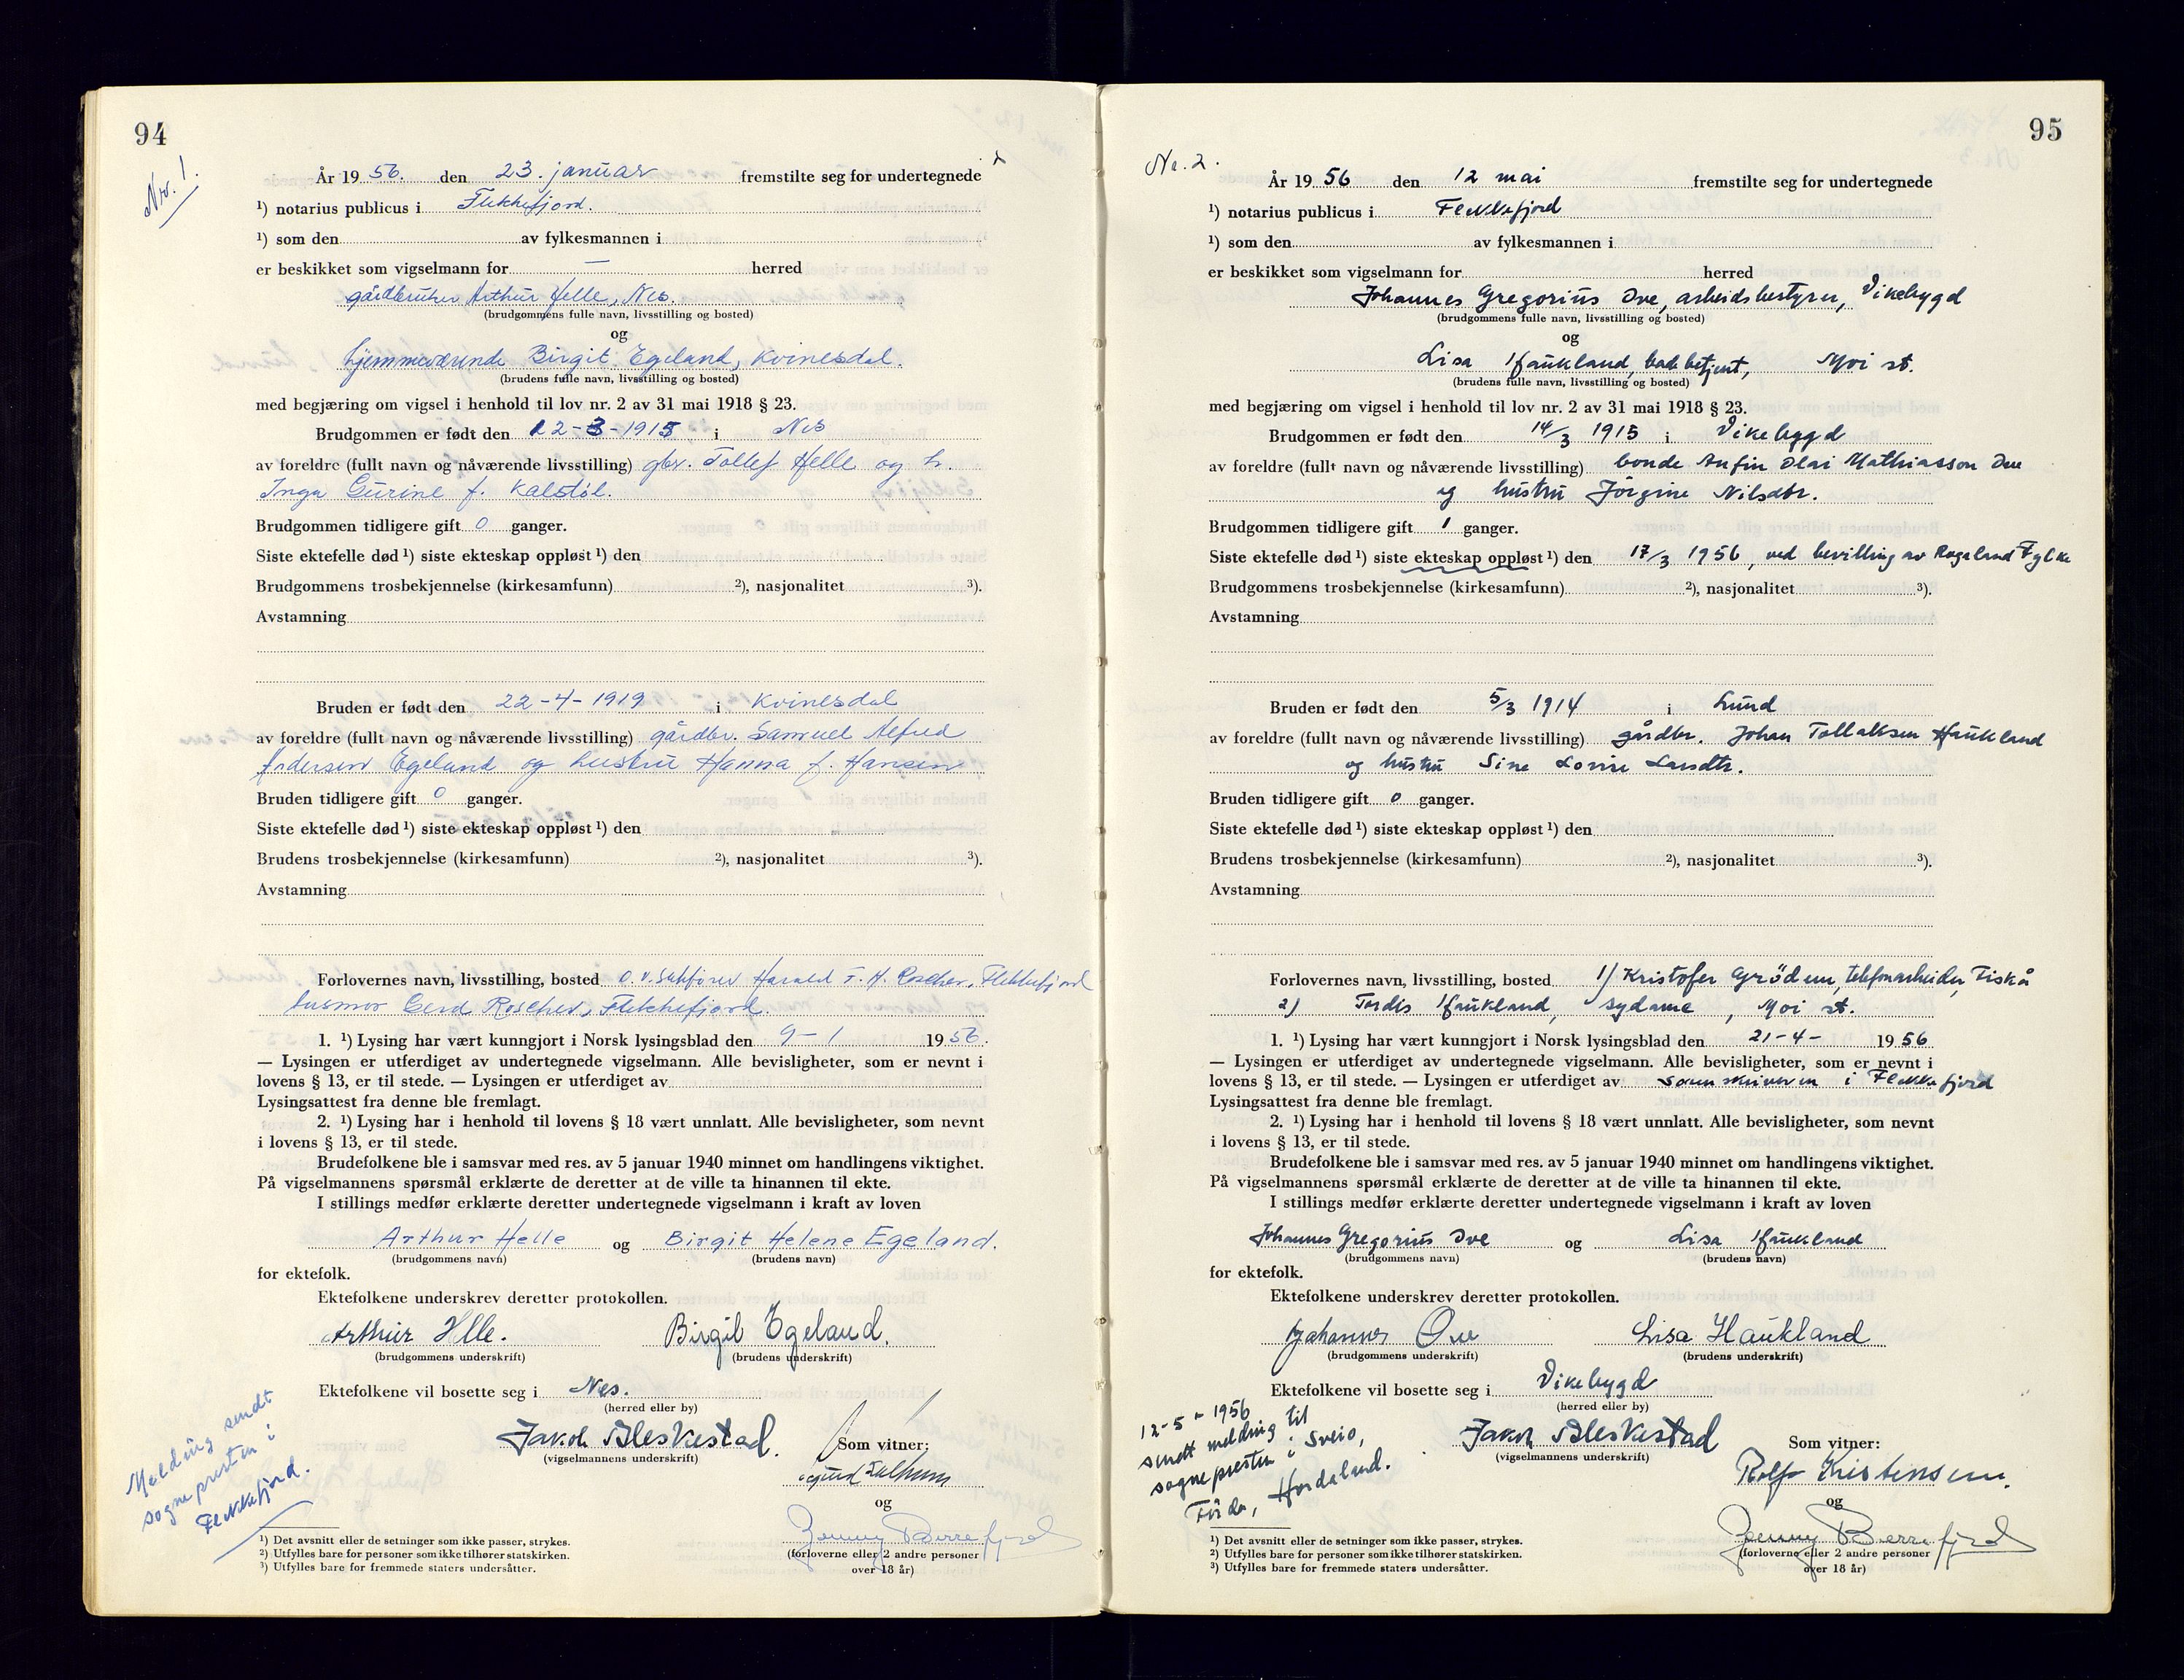 94
Nr. 1.
År 1956. den 23. januar fremstilte seg for undertegnede
¹) notarius publicus i Flekkefjord.
¹) som den av fylkesmannen i
er beskikket som vigselmann for — herred
gårdbruker Arthur Helle, Nes.
(brudgommens fulle navn, livsstilling og bosted)
og
hjemmeværende Birgit Egeland, Kvinesdal.
(brudens fulle navn, livsstilling og bosted)
med begjæring om vigsel i henhold til lov nr. 2 av 31 mai 1918 § 23.
Brudgommen er født den 12-3-1915 i Nes
av foreldre (fullt navn og nåværende livsstilling) gbr. Tollef Helle og h.
Inga Gurine f. Kalstøl.
Brudgommen tidligere gift 0 ganger.
Siste ektefelle død ¹) siste ekteskap oppløst ¹) den
Brudgommens trosbekjennelse (kirkesamfunn) ²), nasjonalitet ³).
Avstamning
Bruden er født den 22-4-1919 i Kvinesdal
av foreldre (fullt navn og nåværende livsstilling) gårdbr. Samuel Alfred
Andersen Egeland og hustru Hanna f. Hansen
Bruden tidligere gift 0 ganger.
Siste ektefelle død ¹) siste ekteskap oppløst ¹) den
Brudens trosbekjennelse (kirkesamfunn) ²), nasjonalitet ³).
Avstamning
Forlovernes navn, livsstilling, bosted Harald T. H. Roscher, Flekkefjord
husmor Gerd Roscher, Flekkefjord.
1. ¹) Lysing har vært kunngjort i Norsk lysingsblad den 9-1 1956.
— Lysingen er utferdiget av undertegnede vigselmann. Alle bevisligheter, som er nevnt i
lovens § 13, er til stede. — Lysingen er utferdiget av
Lysingsattest fra denne ble fremlagt.
2. ¹) Lysing har i henhold til lovens § 18 vært unnlatt. Alle bevisligheter, som nevnt
i lovens § 13, er til stede.
Brudefolkene ble i samsvar med res. av 5 januar 1940 minnet om handlingens viktighet.
På vigselmannens spørsmål erklærte de deretter at de ville ta hinannen til ekte.
I stillings medfør erklærte deretter undertegnede vigselmann i kraft av loven
Arthur Helle og Birgit Helene Egeland.
(brudgommens navn) (brudens navn)
for ektefolk.
Ektefolkene underskrev deretter protokollen.
Arthur Helle. Birgit Egeland.
(brudgommens underskrift) (brudens underskrift)
Ektefolkene vil bosette seg i Nes.
(herred eller by)
Jakob Bleskestad.
(vigselmannens underskrift)
Som vitner:
og
Jenny Berrefjord
(forloverne eller 2 andre personer
over 18 år)
Melding sendt
sognepresten i
Flekkefjord.
¹) Det avsnitt eller de setninger som ikke passer, strykes.
²) Utfylles bare for personer som ikke tilhører statskirken.
³) Utfylles bare for fremmede staters undersåtter.
95
Nr. 2.
År 1956 den 12 mai fremstilte seg for undertegnede
¹) notarius publicus i Flekkefjord
¹) som den av fylkesmannen i
er beskikket som vigselmann for herred
Johannes Gregorius Ove, arbeidsbestyrer, Vikebygd
(brudgommens fulle navn, livsstilling og bosted)
og
Lisa Haukland, badebetjent, Moi st.
(brudens fulle navn, livsstilling og bosted)
med begjæring om vigsel i henhold til lov nr. 2 av 31 mai 1918 § 23.
Brudgommen er født den 14/3 1915 i Vikebygd
av foreldre (fullt navn og nåværende livsstilling) bonde Anfin Olai Mathiasson Ove
og hustru Jörgine Nilsdtr.
Brudgommen tidligere gift 1 ganger.
Siste ektefelle død ¹) siste ekteskap oppløst ¹) den 17/3 1956, ved bevilling av Rogaland Fylke
Brudgommens trosbekjennelse (kirkesamfunn) ²), nasjonalitet ³).
Avstamning
Bruden er født den 5/3 1914 i Lund
av foreldre (fullt navn og nåværende livsstilling) gårdbr. Johan Tollaksen Haukland
og hustru Sine Lovise Larsdtr.
Bruden tidligere gift 0 ganger.
Siste ektefelle død ¹) siste ekteskap oppløst ¹) den
Brudens trosbekjennelse (kirkesamfunn) ²), nasjonalitet ³).
Avstamning
Forlovernes navn, livsstilling, bosted 1) Kristofer Grödem, telefonarbeider, Fiskå
2) Tordis Haukland, sydame, Moi st.
1. ¹) Lysing har vært kunngjort i Norsk lysingsblad den 21-4- 1956
— Lysingen er utferdiget av undertegnede vigselmann. Alle bevisligheter, som er nevnt i
lovens § 13, er til stede. — Lysingen er utferdiget av sorenskriveren i Flekkefjord
Lysingsattest fra denne ble fremlagt.
2. ¹) Lysing har i henhold til lovens § 18 vært unnlatt. Alle bevisligheter, som nevnt
i lovens § 13, er til stede.
Brudefolkene ble i samsvar med res. av 5 januar 1940 minnet om handlingens viktighet.
På vigselmannens spørsmål erklærte de deretter at de ville ta hinannen til ekte.
I stillings medfør erklærte deretter undertegnede vigselmann i kraft av loven
Johannes Gregorius Ove og Lisa Haukland
(brudgommens navn) (brudens navn)
for ektefolk.
Ektefolkene underskrev deretter protokollen.
Johannes Ove Lisa Haukland
(brudgommens underskrift) (brudens underskrift)
Ektefolkene vil bosette seg i Vikebygd
(herred eller by)
Jakob Bleskestad
(vigselmannens underskrift)
Som vitner:
Rolf Kristensen.
og
Jenny Berrefjord
(forloverne eller 2 andre personer
over 18 år)
12-5-1956
sendt melding til
sognepresten i Sveio,
Förde, Hordaland.
¹) Det avsnitt eller de setninger som ikke passer, strykes.
²) Utfylles bare for personer som ikke tilhører statskirken.
³) Utfylles bare for fremmede staters undersåtter.